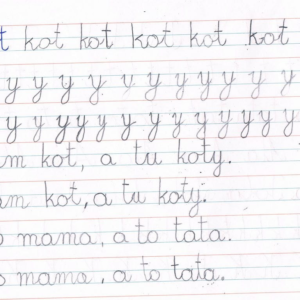 t kot kot kot kot kot
y y y y y y y y y y y
y y y y y y y y y y y y y
am kot, a tu koty.
am kot, a tu koty.
o mama, a to tata.
o mama, a to tata.